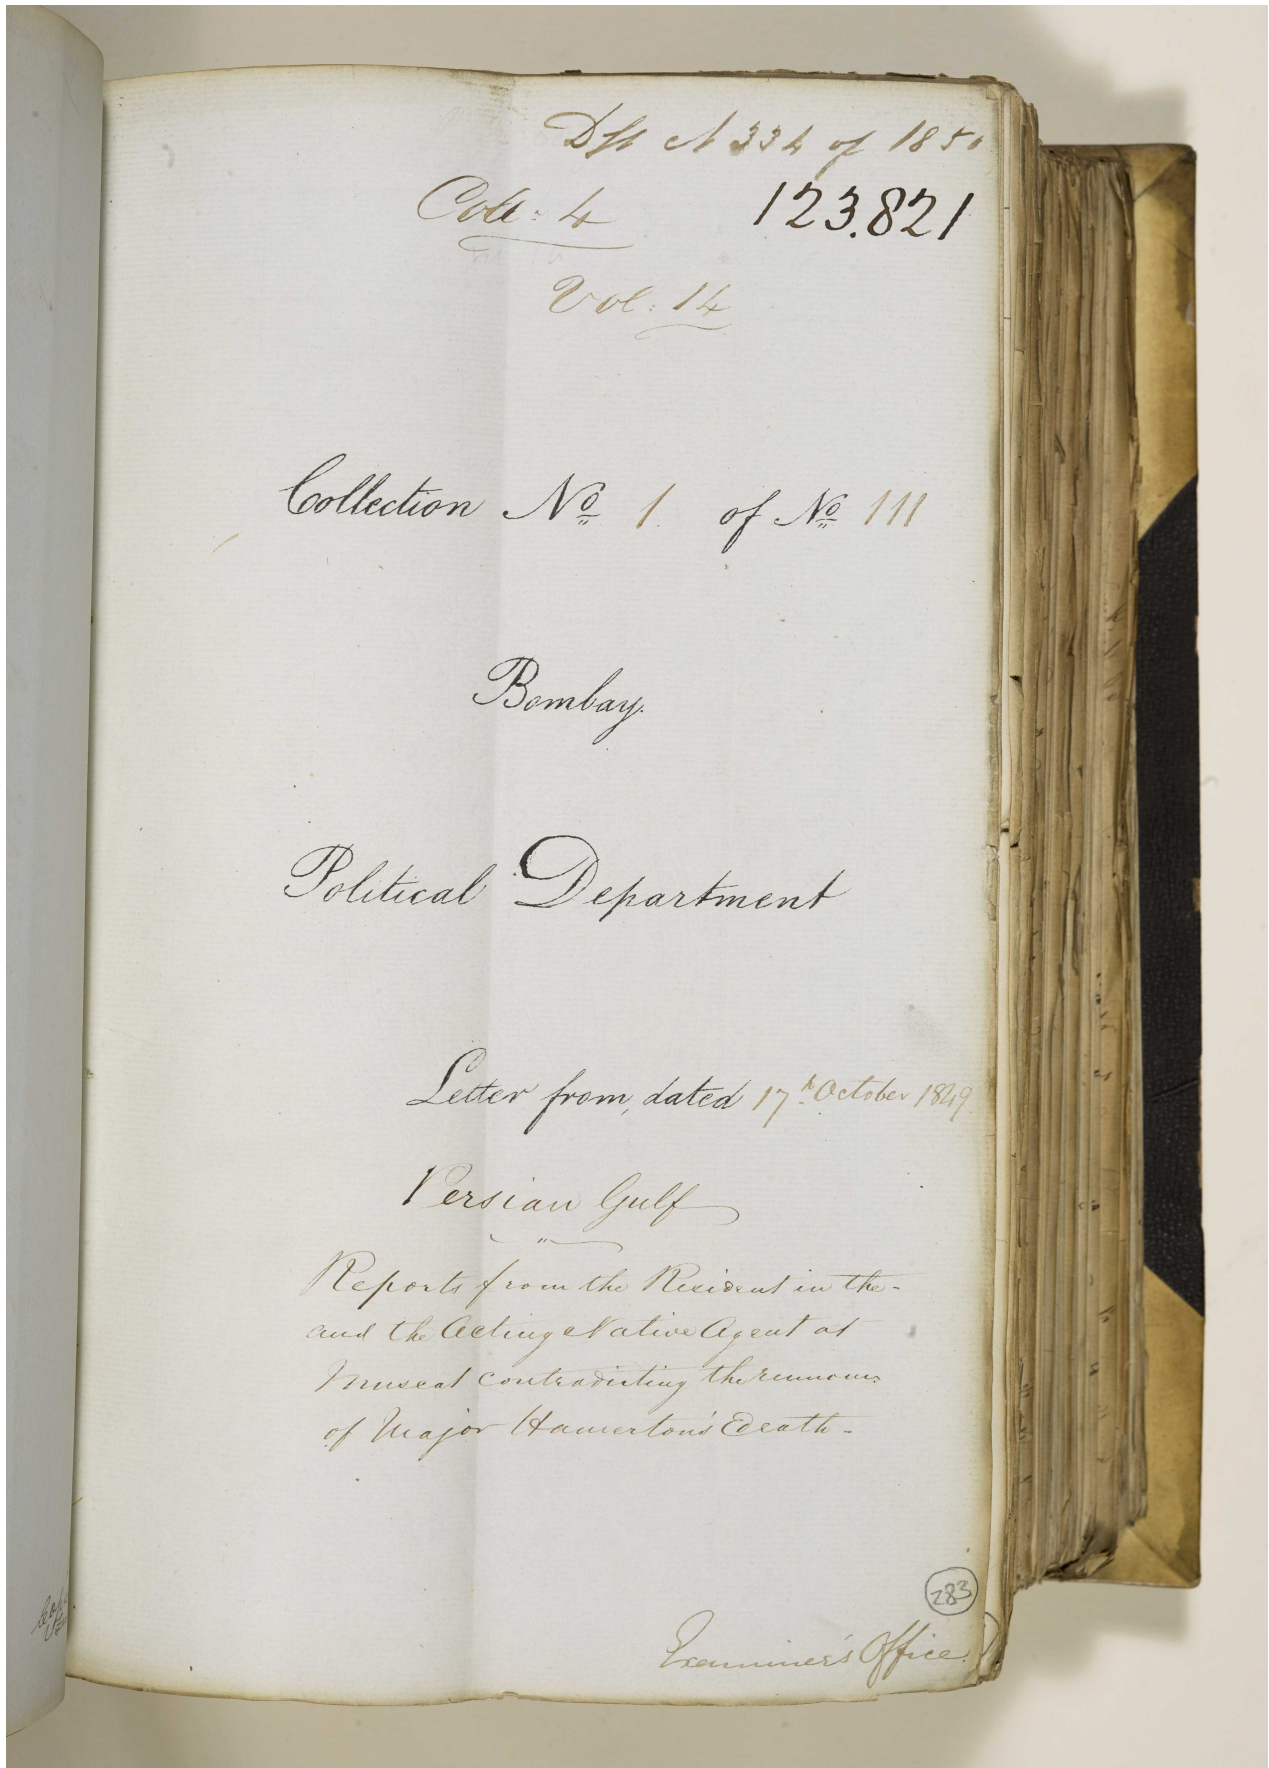 Dft N 334 of 1850
Coll: 4
123.821
Vol: 14
Collection No 1. of No 111
Bombay.
Political Department
Letter from, dated 17th October 1849
Persian Gulf
Reports from the Resident in the -
and the Acting Native Agent at
Muscat contradicting the rumours
of Major Hamerton's Death -
283
Examiner's Office.